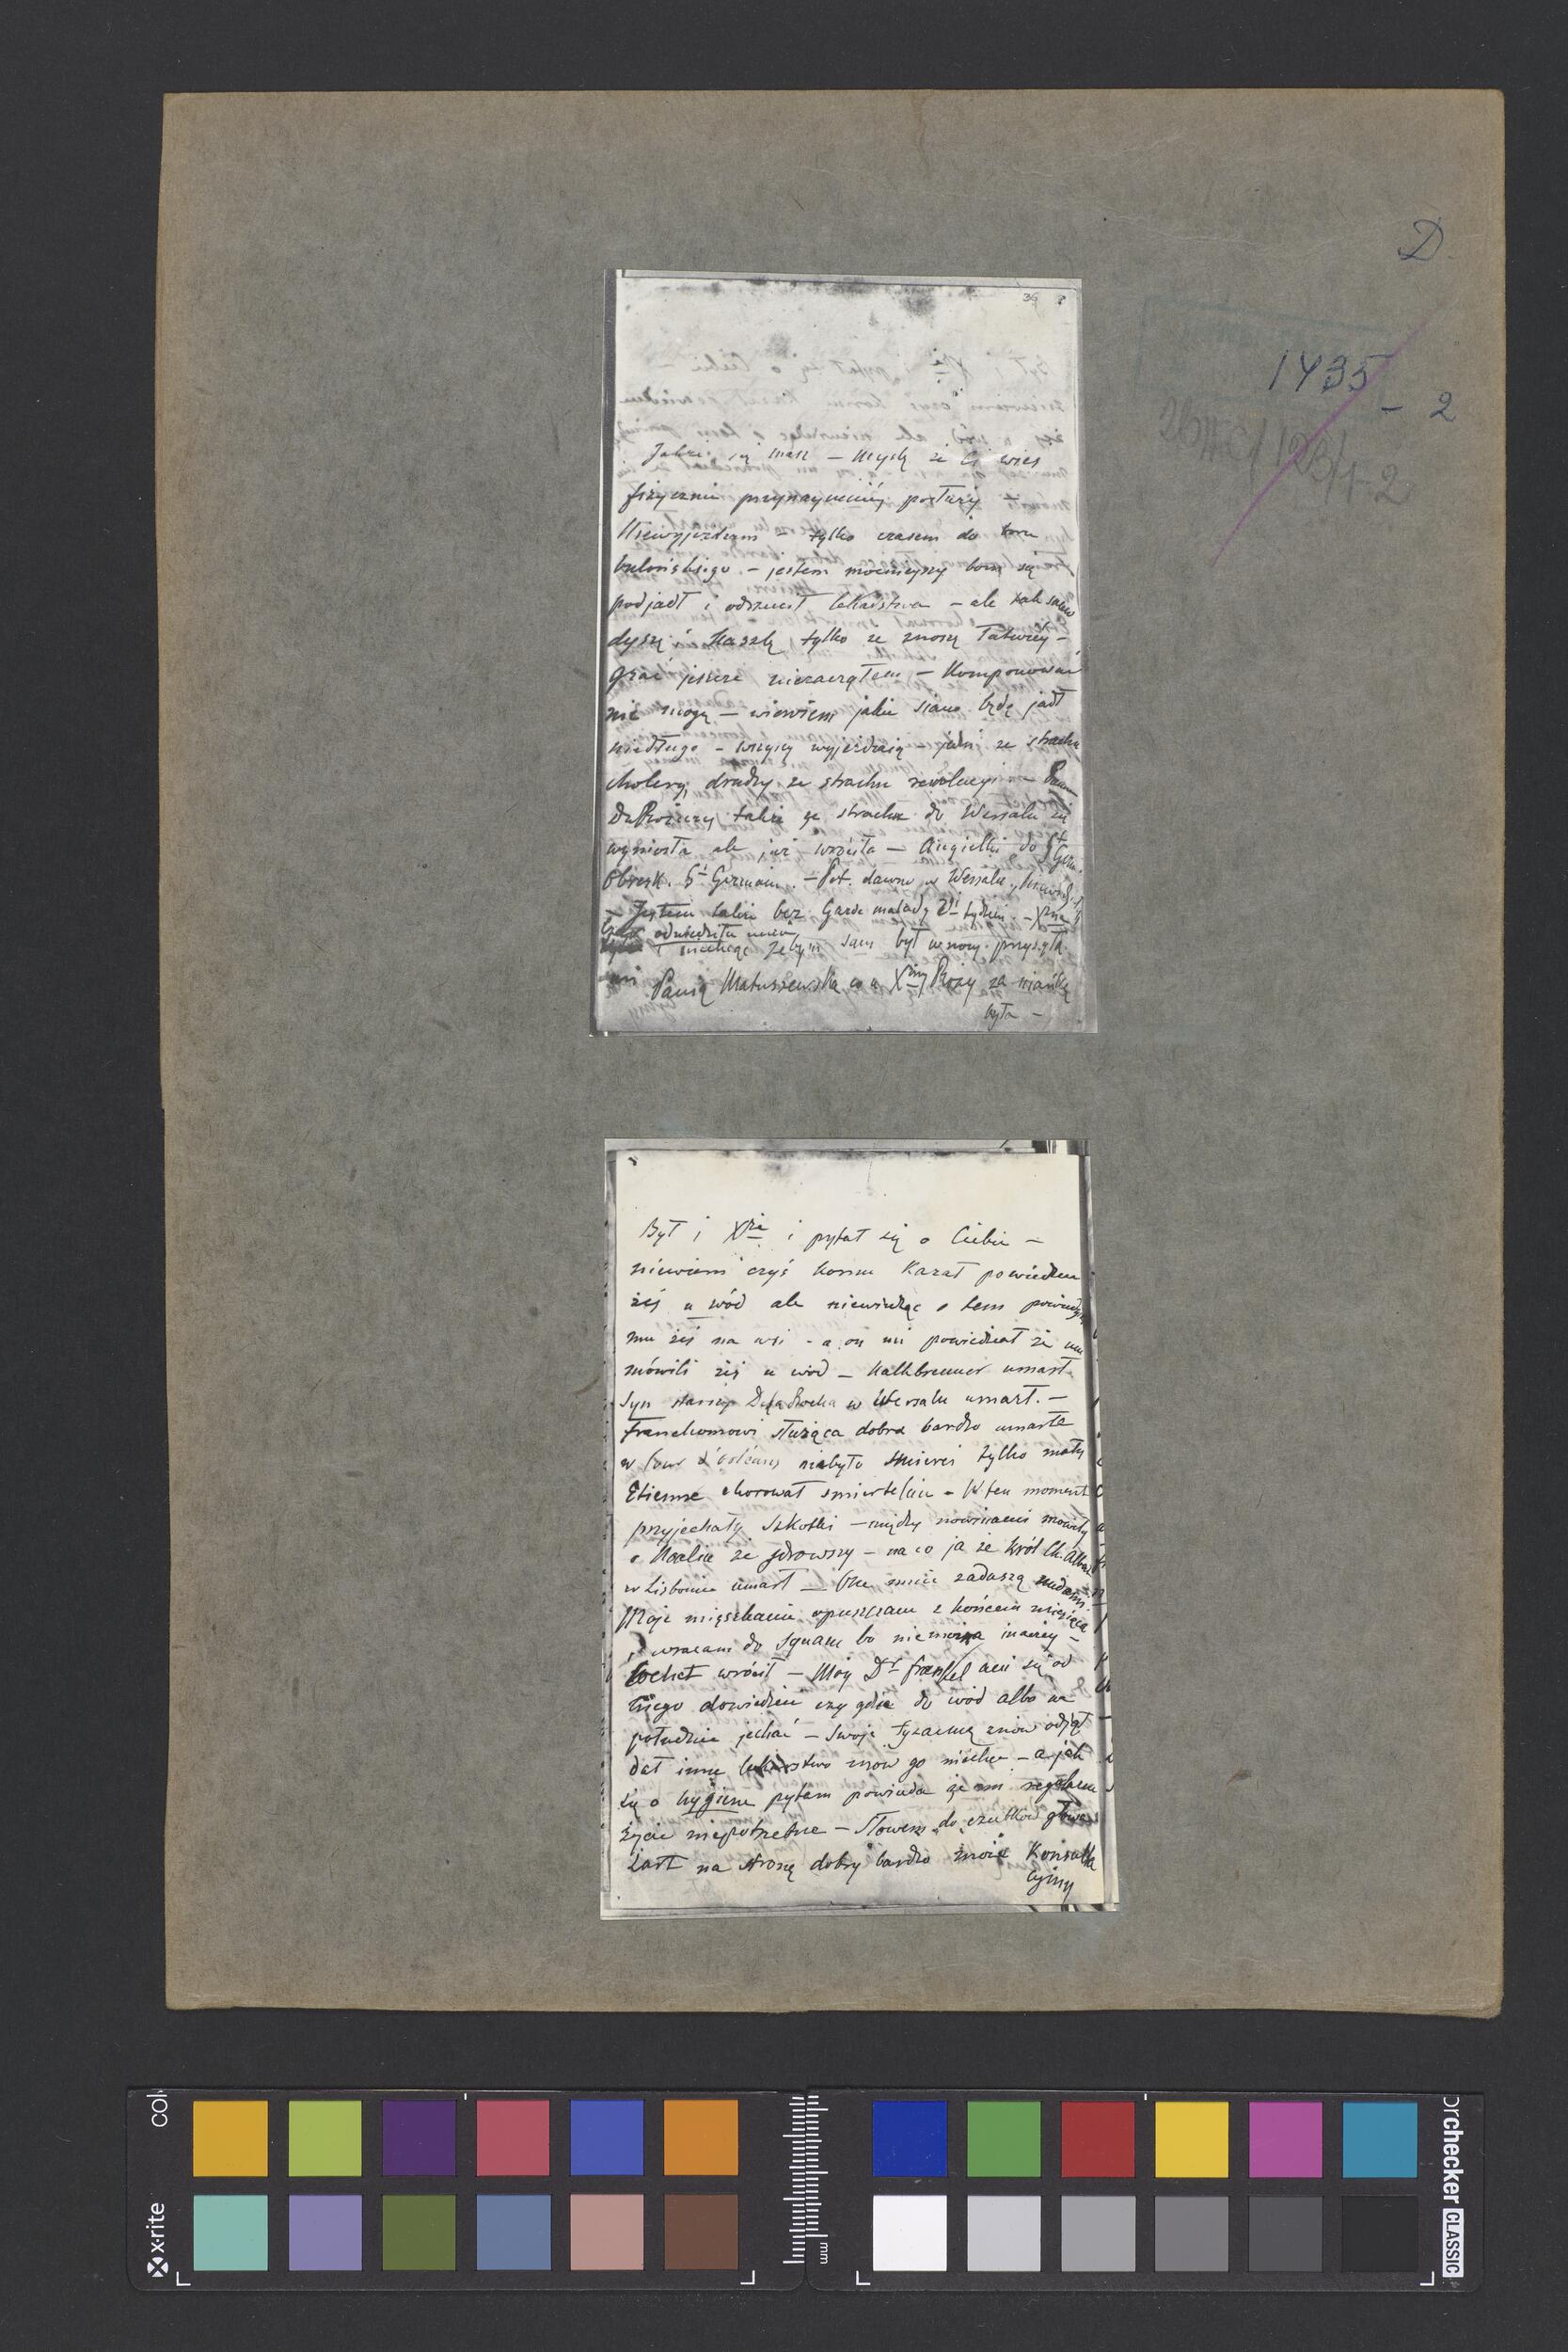 D.
1435 - 2
36
Jakże się masz – Myslę że Ci wieś
fizycznie przynajmniej posłuży –
Niewyjezdzam – tylko czasem do
bulońskiego – jestem mocniejszy bom się
podjadł i odrzucił lekarstwa – ale tak samo
dyszę i Kaszlę tylko że znoszę łatwiéj –
Grać jeszcze niezacząłem – Komponować
nie mogę – niewiem jakie siano będę jadł
niedługo – wszyscy wyjeżdżają – jedni ze strachu
cholery, drudzy ze strachu rewolucyi –
także ze strachu do Wersalu się
wyniosła ale już wróciła – Angielki do St Germ.
Obresk. St Germain. – Pot. dawno w Wersalu
– Jestem także bez Garde malady 2i tydzień –
odwiedziła mnie
i niechcąc żebym sam był w nocy przysyła
mi Panią Matuszewską co u Xżny Rózy za niańkę
była –
Był i Xże i pytał się o Ciebie –
niewiem czyś komu Kazał powiedzieć
żeś u wód ale niewiedząc o tem powiedziałem
mu żeś na wsi – a on mi powiedział że mu
mówili żeś u wód – Kalkbrenner umarł
Syn starszy DelaRocha w Wersalu umarł. –
Franchomowi służąca dobra bardzo umarła
w Cour d'orléans niebyło śmierci tylko mały
Etienne chorował smiertelnie – W ten moment
przyjechały Szkotki – między nowinami mówiły
o Noalie że zdrowszy – na co ja że król Ch. Albert
w Lisbonie umarł – One mnie zaduszą nudami –
Moje mieszkanie opuszczam z końcem miesiąca
i wracam do Squaru bo niemożna inaczéj –
Cochet wrócił – Mój Dr Fraenkel ani się od
niego dowiedzieć czy gdzie do wód albo na
południe jechać – Swoje tyzannę znów odjął
dał inne lekarstwo znów go niechcę – a jak
się o hygienę pytam powiada że mi regularne
życie niepotrzebne – Słowem do czubków głowa
Żart na stronę dobry bardzo może Konsulta
cyjny